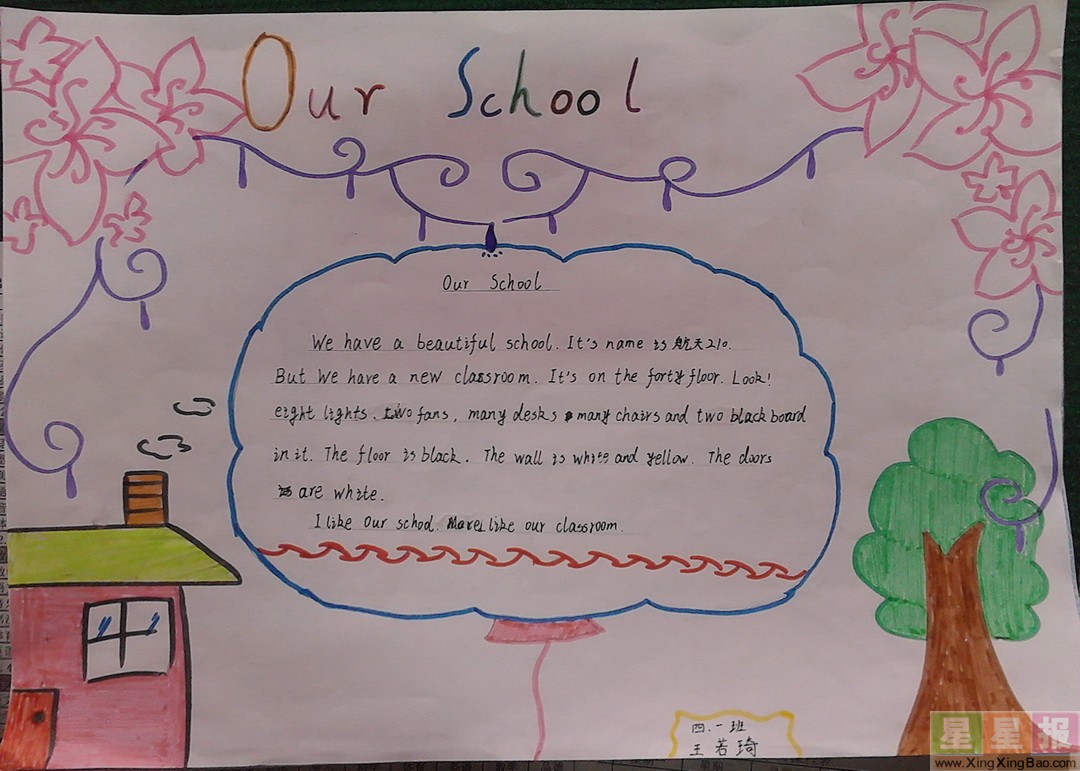 Our School
Our School
We have a beautiful school. It's name is 航天210.
But We have a new classroom. It's on the forty floor. Look!
eight lights. two fans, many desks many chairs and two black board
in it. The floor is black. The wall is white and yellow. The doors
are white.
I like Our school. like our classroom.
四.一班
王若琦
星星报
www.XingXingBao.com